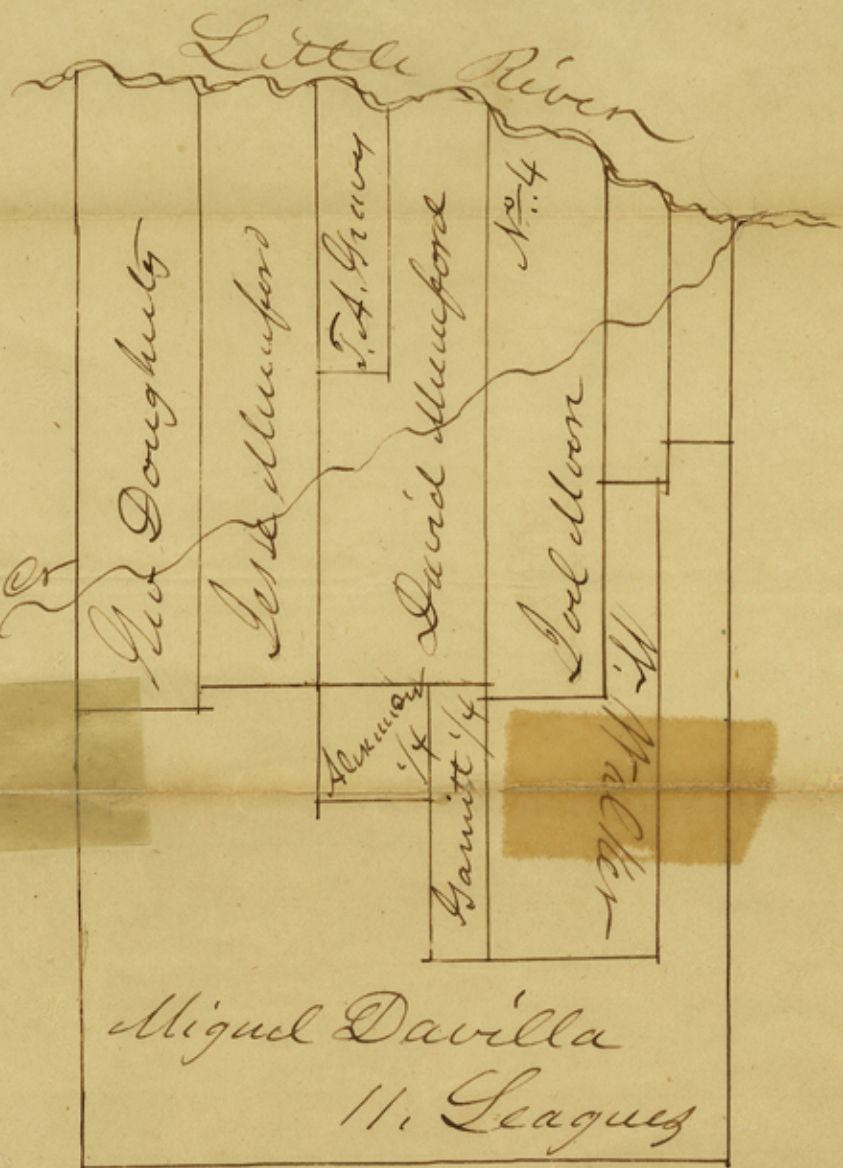 Little River
Geo Dougherty
Jesse Mumford
T. A. Graves
David Mumford
No. 4
Joel Moore
Cr
1/4
Garritt 1/4
W. Walker
Miguel Davilla
11. Leagues